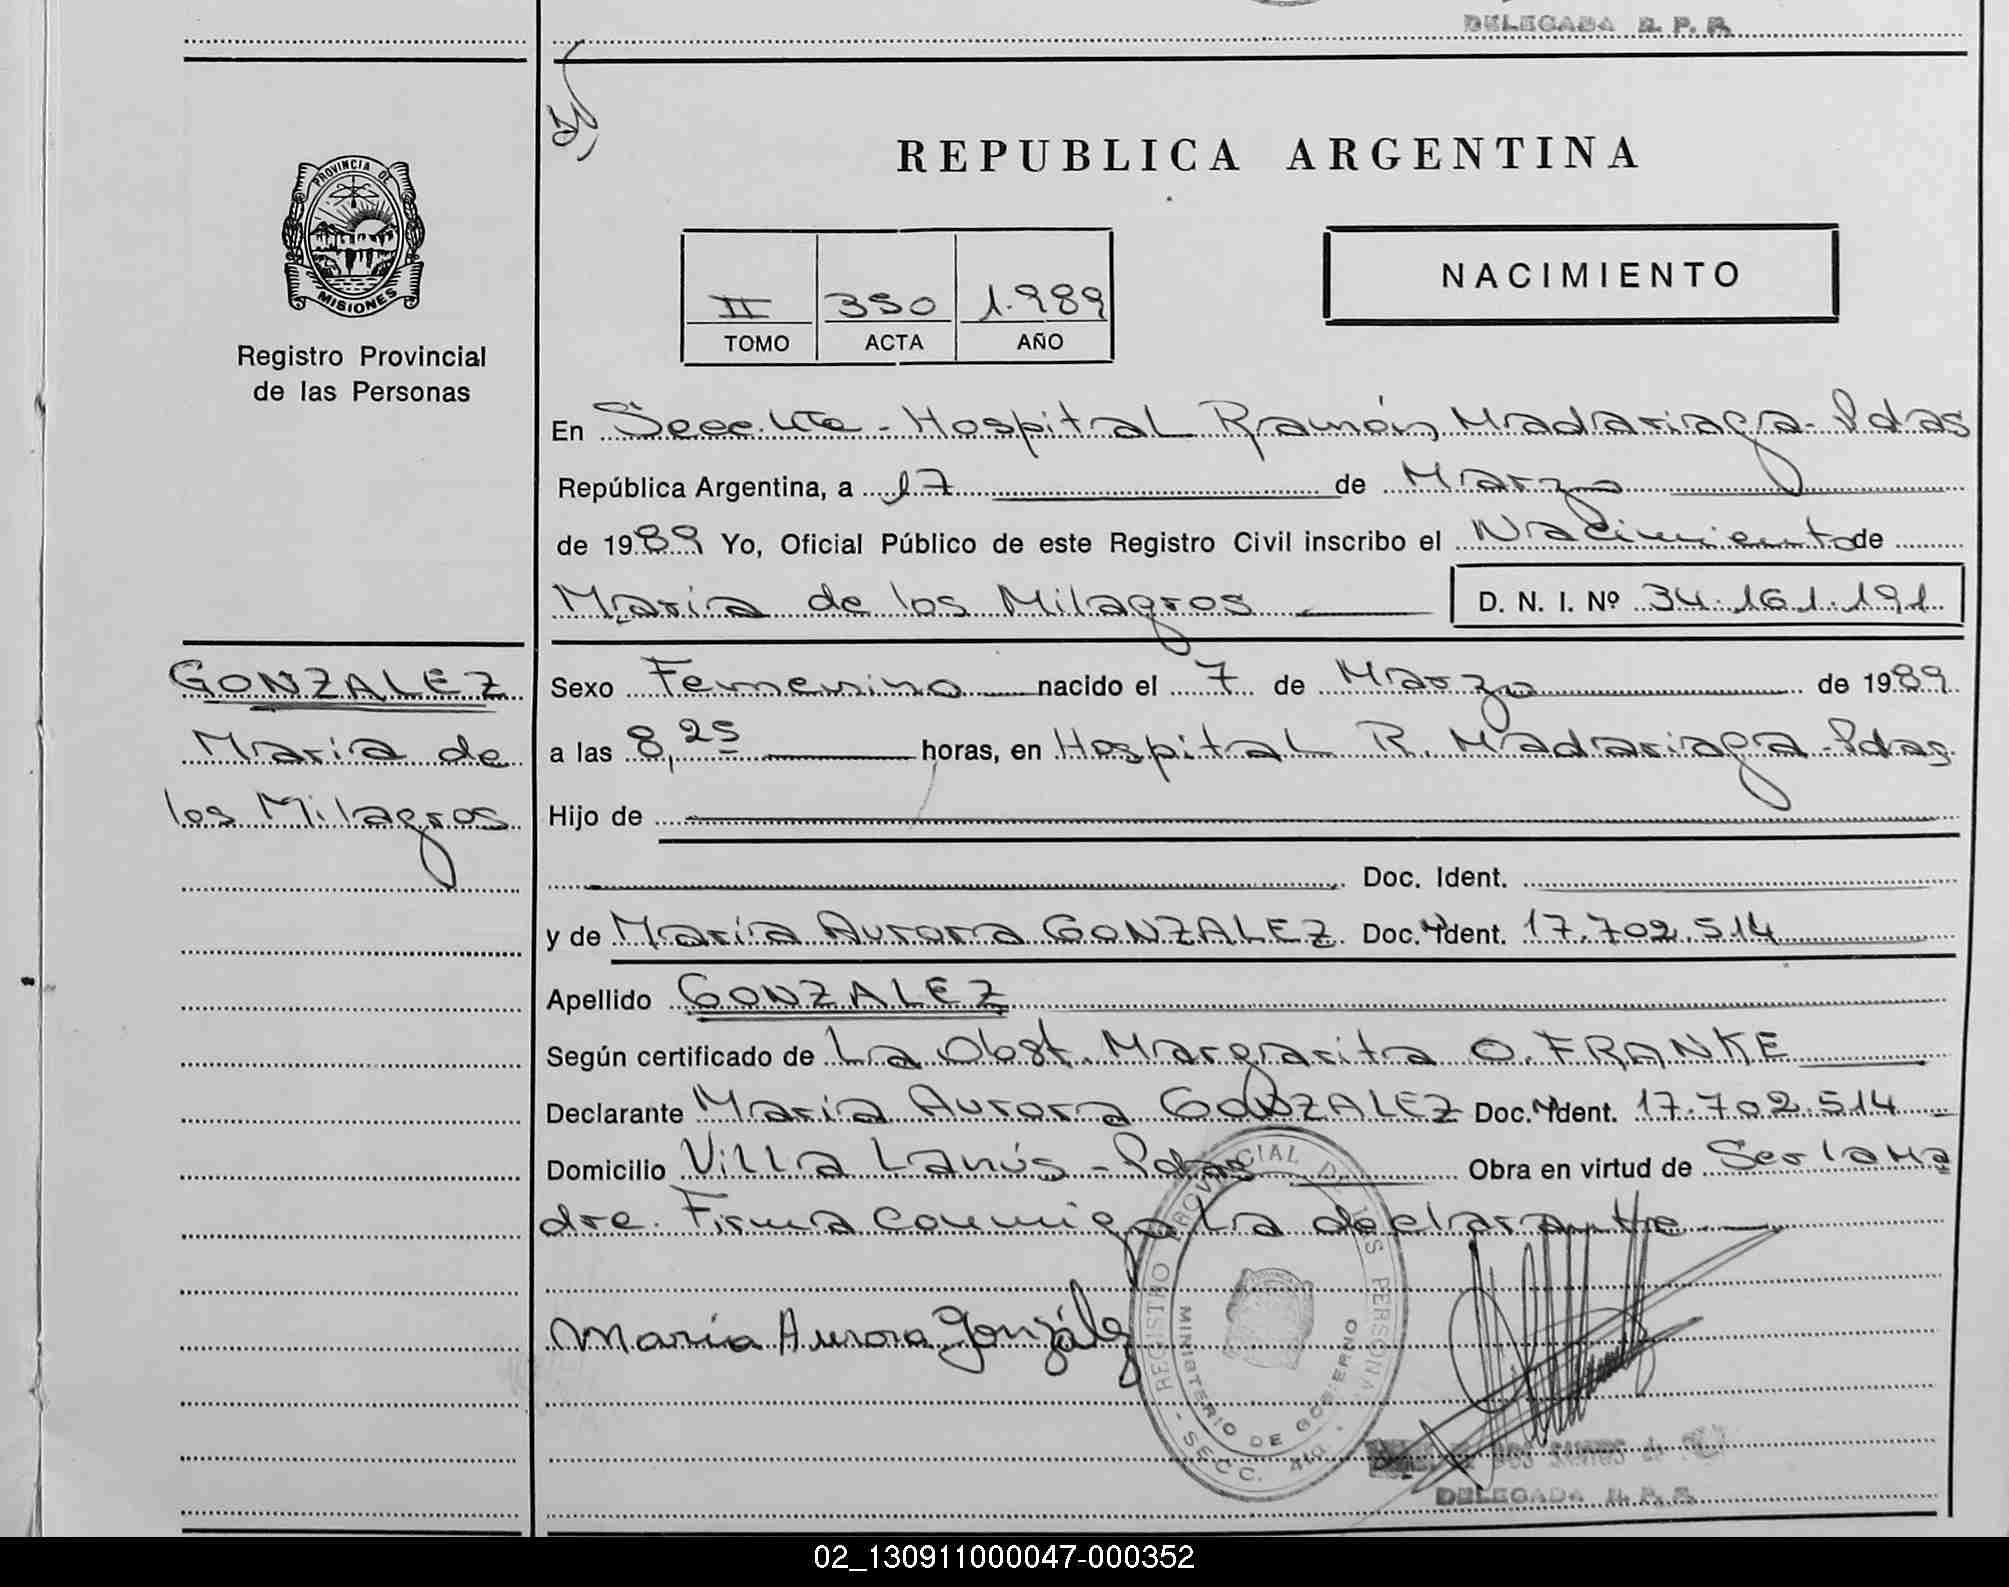 DELEGADA R. P. P.
PROVINCIA DE
MISIONES
Registro Provincial
de las Personas
REPUBLICA ARGENTINA
II 350 1.989
TOMO ACTA AÑO
NACIMIENTO
En Secc. 4ta - Hospital Ramón Madariaga - Pdas
República Argentina, a 17 de Marzo
de 1989 Yo, Oficial Público de este Registro Civil inscribo el Nacimiento de
María de los Milagros D. N. I. Nº 34.161.191
GONZALEZ
María de
los Milagros
Sexo Femenino nacido el 7 de Marzo de 1989
a las 8,25 horas, en Hospital R. Madariaga - Pdas
Hijo de
Doc. Ident.
y de María Aurora GONZALEZ Doc. Ident. 17.702.514
Apellido GONZALEZ
Según certificado de La Obst. Margarita O. FRANKE
Declarante María Aurora GONZALEZ Doc. Ident. 17.702.514
Domicilio Villa Lanús - Pdas Obra en virtud de Ser la ma
dre. Firma conmigo la declarante
María Aurora González
REGISTRO PROVINCIAL DE LAS PERSONAS
MINISTERIO DE GOBIERNO
- SECC. 4ta -
DOS SANTOS de
DELEGADA R. P. P.
02_130911000047-000352